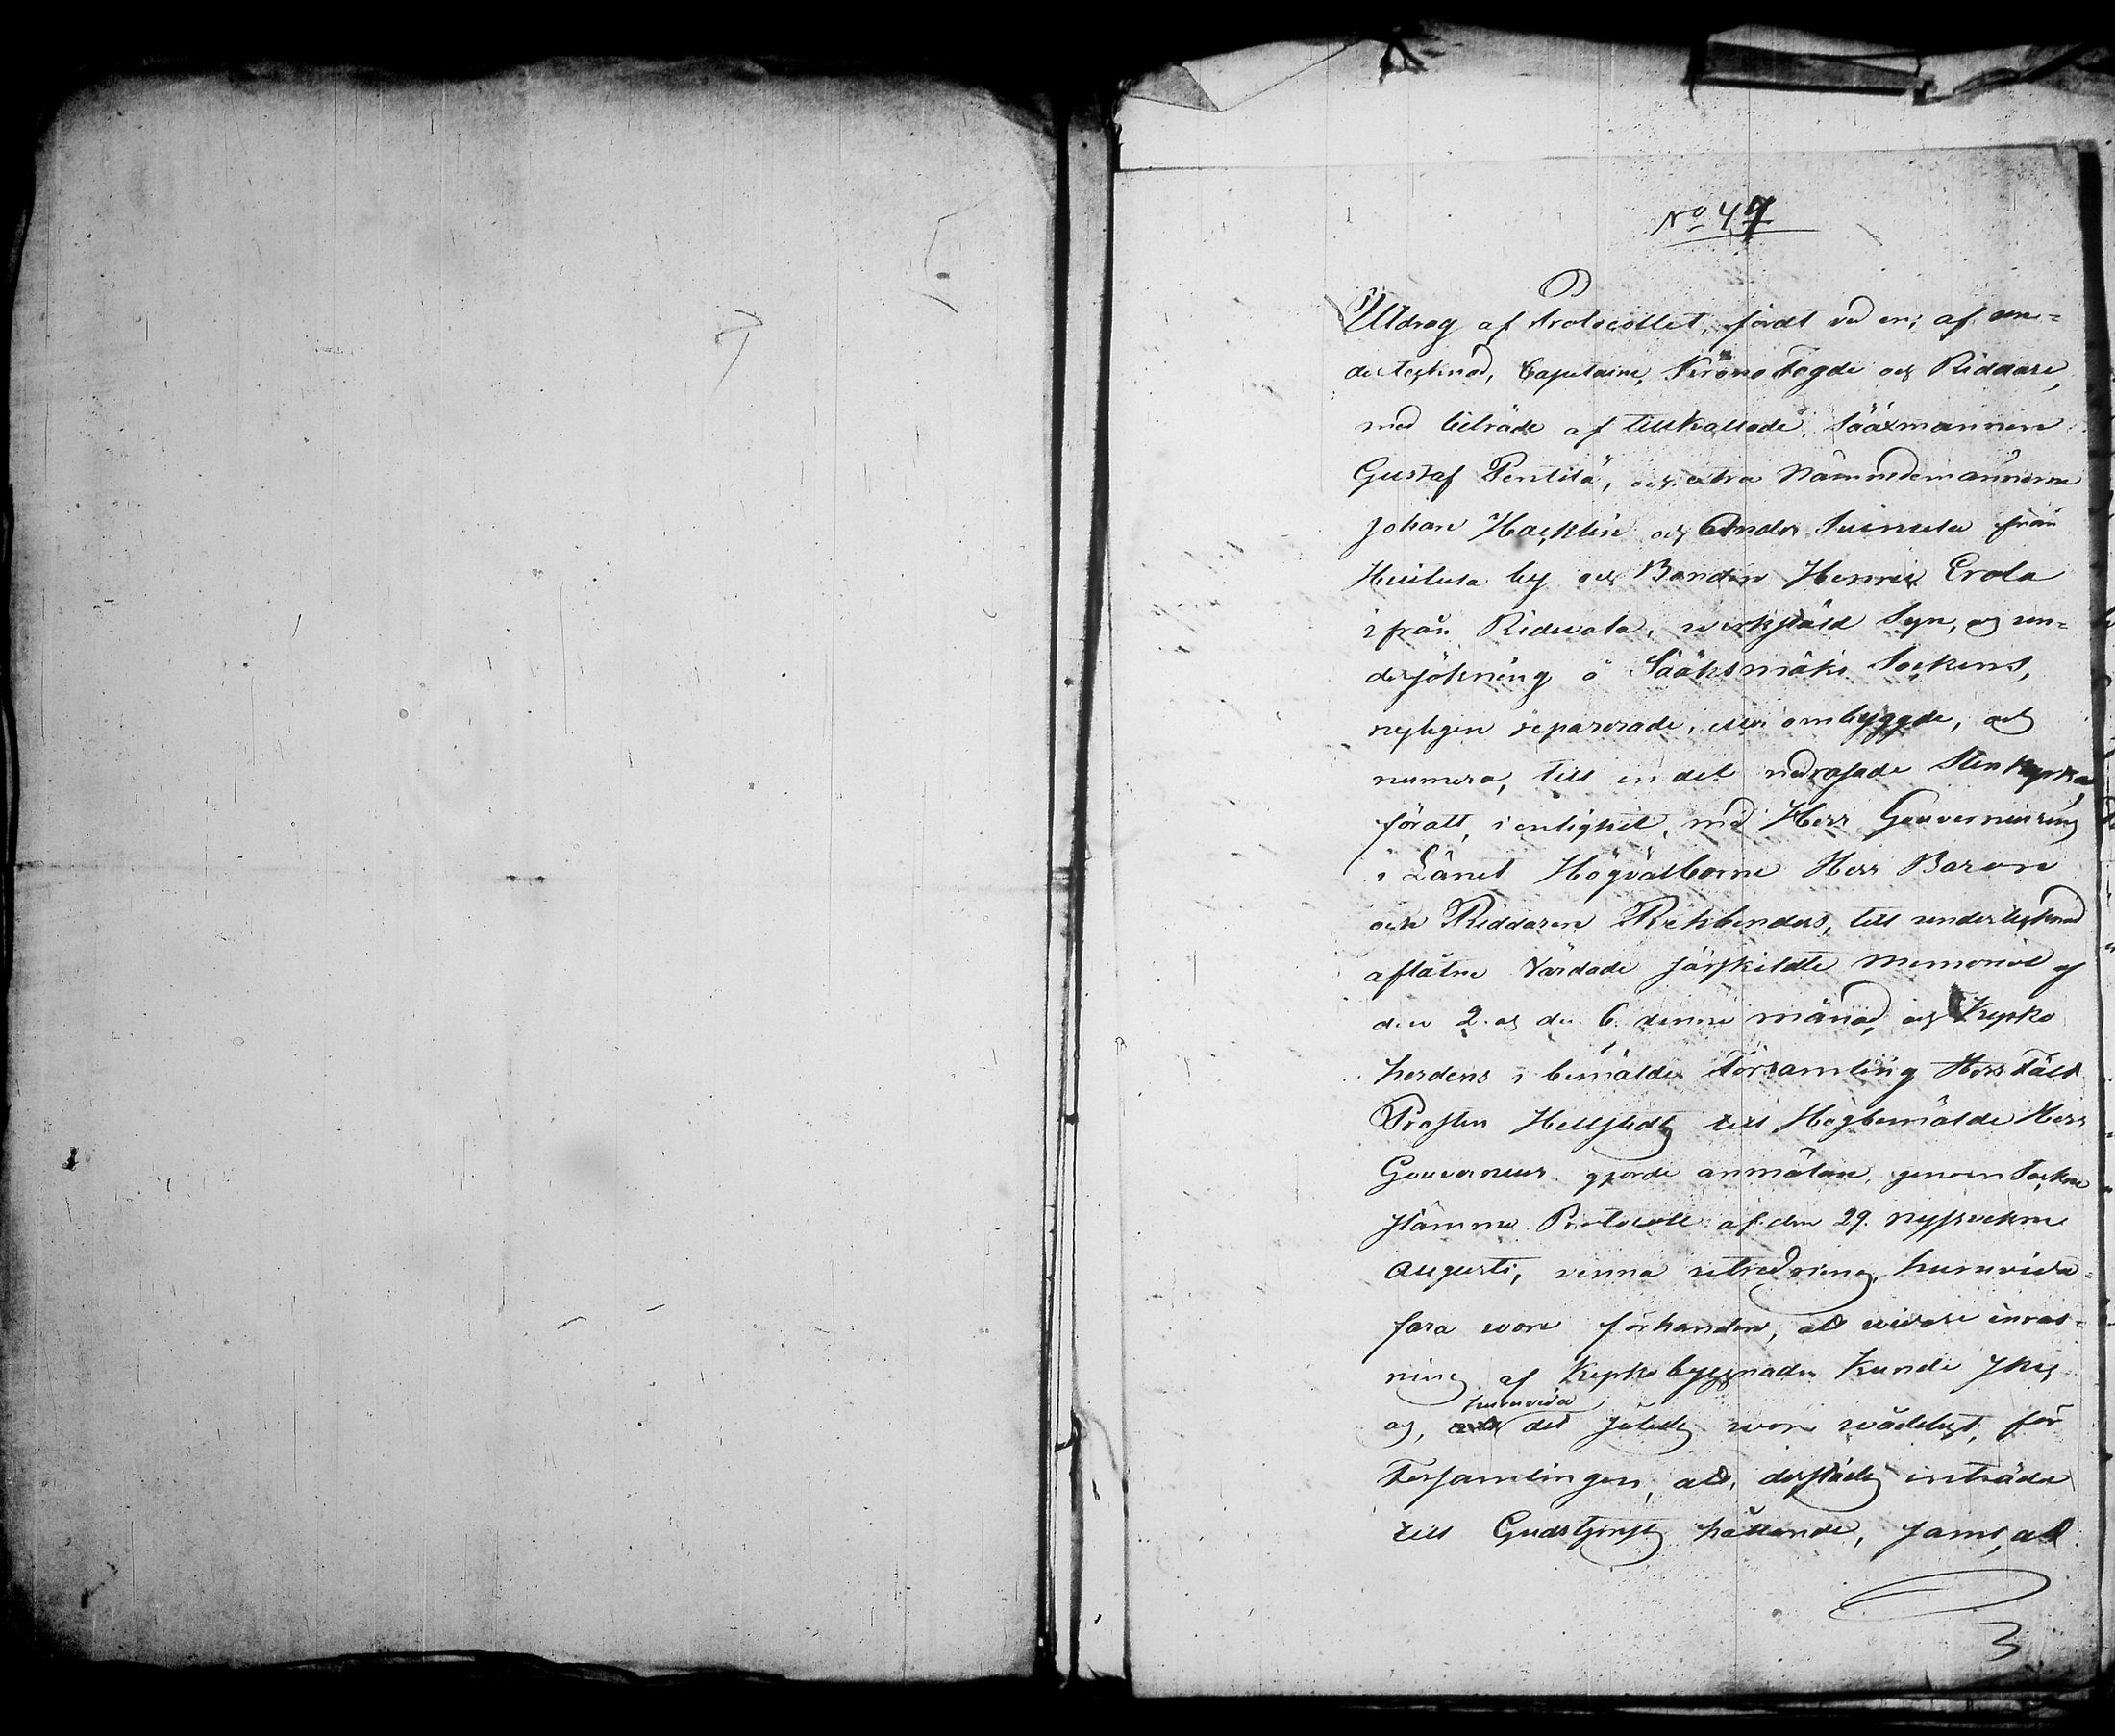 No 49
Utdrag af Protocollet, fördt vid en, af un=
dertecknad, Capitaine, Krono Fogde och Riddare,
med biträde af tillkallade, Sääxmannen
Gustaf Pentilä, och extra Nämndemännerne
Johan Hacklin och Anders Suinula från
Huitula by och Bonden Henric Erola
ifrån Ridvala, werkstäld Syn, och un=
dersökning å Sääksmäki Sockens,
nyligen reparerade, eller ombyggde, och
numera, till en del nedrasade Stenkyrka,
föratt, i enlighet, med Herr Gouverneurens
i Länet Högvälborne Herr Baron
och Riddaren Rehbinders, till undertecknad
aflåtne Vördade särskildte Memorial af
den 2. och den 6. denne månad, och Kyrko
herdens i bemälde Församling Herr Fält
Prosten Hellstedts till Högbemälde Herr
Gouverneur gjorde anmälan, genom Socken
stämmo Protocoll af den 29. nyssvekne
Augusti, vinna utredning, huruvida
fara wore förhanden, att widare inras=
ning af Kyrko byggnaden kunde ske,
och, huruvida det således wore wådeligt, för
Församlingen, att, derstädes inträda
till Gudstjensts hållande, samt, att